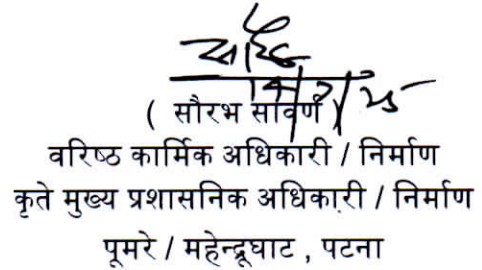 ( सौरभ सावर्ण )
वरिष्ठ कार्मिक अधिकारी / निर्माण
कृते मुख्य प्रशासनिक अधिकारी / निर्माण
पूमरे / महेन्द्रूघाट , पटना